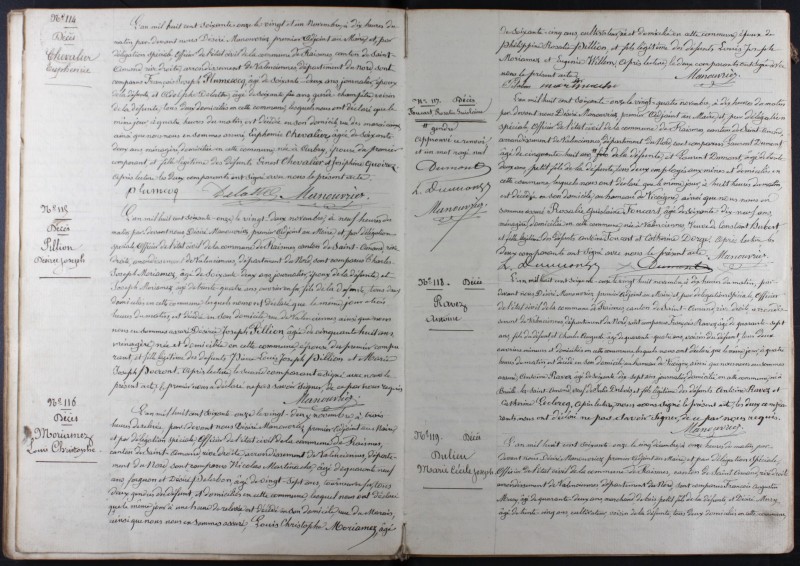 N° 114
Décès
Chevalier
Euphémie
L'an mil huit cent soixante onze le vingt et un Novembre, à dix heures du
matin par devant nous Désiré Manouvrier premier Adjoint au Maire, et par
délégation spéciale Officier de l'état civil de la commune de Raismes canton de Saint-
Amand rive droite, arrondissement de Valenciennes, département du Nord sont
comparus François Joseph Plumecocq âgé de soixante deux ans journalier, époux
de la défunte, et Adolphe Delattre, âgé de soixante six ans garde champêtre, voisin
de la défunte, tous deux domiciliés en cette commune, lesquels nous ont déclaré que le
même jour à quatre heures du matin est décédée en son domicile rue des marais
ainsi que nous nous en sommes assuré, Euphémie Chevalier, âgée de soixante
deux ans ménagère, domiciliée en cette commune, née à Aubry, épouse du premier
comparant et fille légitime des défunts Chevalier et Joséphine
Après lecture les deux comparants ont signé avec nous le présent acte
plumecocq Delattre Manouvrier
N° 115
Décès
Pillion
Désiré Joseph
L'an mil huit cent soixante onze le vingt deux novembre à neuf heures du
matin par devant nous Désiré Manouvrier premier Adjoint au Maire et par délégation
spéciale Officier de l'état civil de la commune de Raismes canton de Saint-Amand, rive
droite arrondissement de Valenciennes, département du Nord sont comparus Charles
Joseph Moriamez âgé de soixante deux ans journalier époux de la défunte et
Joseph Moriamez âgé de trente quatre ans ouvrier en fer fils de la défunte tous deux
domiciliés en cette commune, lesquels nous ont déclaré que le même jour à trois
heures du matin est décédée en son domicile rue de Valenciennes ainsi que nous
nous en sommes assuré Désiré Joseph Pillion, âgée de cinquante huit ans
ménagère née et domiciliée en cette commune, épouse du premier comparant
et fille légitime des défunts Louis Joseph Pillion et Marie
Joseph Après lecture, le second comparant a signé avec nous le
présent acte, le premier nous a déclaré ne pas savoir signer de ce par nous requis
Manouvrier
N° 116
Décès
Moriamez
Louis Christophe
L'an mil huit cent soixante onze le vingt deux novembre à trois
heures du soir, par devant nous Désiré Manouvrier premier Adjoint au Maire
et par délégation spéciale, Officier de l'état civil de la commune de Raismes,
canton de Saint-Amand, rive droite, arrondissement de Valenciennes, département
du Nord sont comparus Nicolas Martinache âgé de quarante neuf
ans forgeron et Désiré Delcoben âgé de vingt sept ans, tous
deux gendres du défunt et domiciliés en cette commune lesquels nous ont déclaré
que le même jour à une heure de relevée est décédé en son domicile rue du Marais,
ainsi que nous nous en sommes assuré, Louis Christophe Moriamez, âgé
de soixante cinq ans cultivateur, né et domicilié en cette commune, époux de
Philippine Rosalie Pillion, et fils légitime des défunts Louis Joseph
Moriamez et Eugénie Willem, Après lecture, les deux comparants ont signé avec
nous le présent acte
Manouvrier
N° 117. Décès
Foucart Rosalie Guislaine
"gendre"
approuvé ce renvoi
et un mot rayé nul
Dumont
L. Dumont
Manouvrier
L'an mil huit cent soixante onze le vingt quatre novembre, à dix heures du matin
par devant nous Désiré Manouvrier premier Adjoint au Maire, et par délégation
spéciale Officier de l'état civil de la commune de Raismes canton de Saint-Amand,
arrondissement de Valenciennes département du Nord sont comparus Laurent Dumont
âgé de cinquante huit ans fils de la défunte, et Laurent Dumont, âgé de
deux ans petit fils de la défunte, tous deux employés aux mines et domiciliés en
cette commune lesquels nous ont déclaré, que le même jour, à huit heures du matin
est décédée en son domicile au hameau de Vicoigne ainsi que nous nous en
sommes assuré Rosalie Guislaine Foucart, âgée de soixante dix neuf ans
ménagère, domiciliée en cette commune, née à Valenciennes, Veuve de Constant Babert
et fille légitime des défunts Foucart et Catherine Après lecture, les
deux comparants ont signé avec nous le présent acte Manouvrier
L. Dumont Dumont
N° 118. Décès
Ravez
Antoine
L'an mil huit cent soixante onze le vingt huit novembre à dix heures du matin, par
devant nous Désiré Manouvrier, premier Adjoint au Maire, et par délégation spéciale, Officier
de l'état civil de la commune de Raismes canton de Saint-Amand rive droite, arrondissement
de Valenciennes département du Nord sont comparus François Ravez âgé de quarante sept
ans fils du défunt et Charles âgé de quarante quatre ans, voisin du défunt, tous deux
ouvriers mineurs et domiciliés en cette commune lesquels nous ont déclaré que le même jour à quatre
heures du matin est décédé en son domicile au hameau de Vicoigne ainsi que nous nous en sommes
assuré Antoine Ravez âgé de soixante dix sept ans domicilié en cette commune, né à
et fils légitime des défunts Antoine Ravez et
Catherine Leclercq, Après lecture, nous avons signé le présent acte, les deux comparants
nous ont déclaré ne pas savoir signer, de ce par nous requis.
Manouvrier
N° 119. Décès
Dulieu
Marie Cécile Joseph
L'an mil huit cent soixante onze le cinq décembre, à onze heures du matin par
devant nous Désiré Manouvrier premier Adjoint au Maire, et par délégation spéciale,
Officier de l'état civil de la commune de Raismes, canton de Saint-Amand rive droite
arrondissement de Valenciennes département du Nord, sont comparus François Augustin
Miroy, âgé de quarante deux ans marchand de bois petit fils de la défunte et Désiré Miroy,
âgé de trente cinq ans, cultivateur, voisin de la défunte, tous deux domiciliés en cette commune,